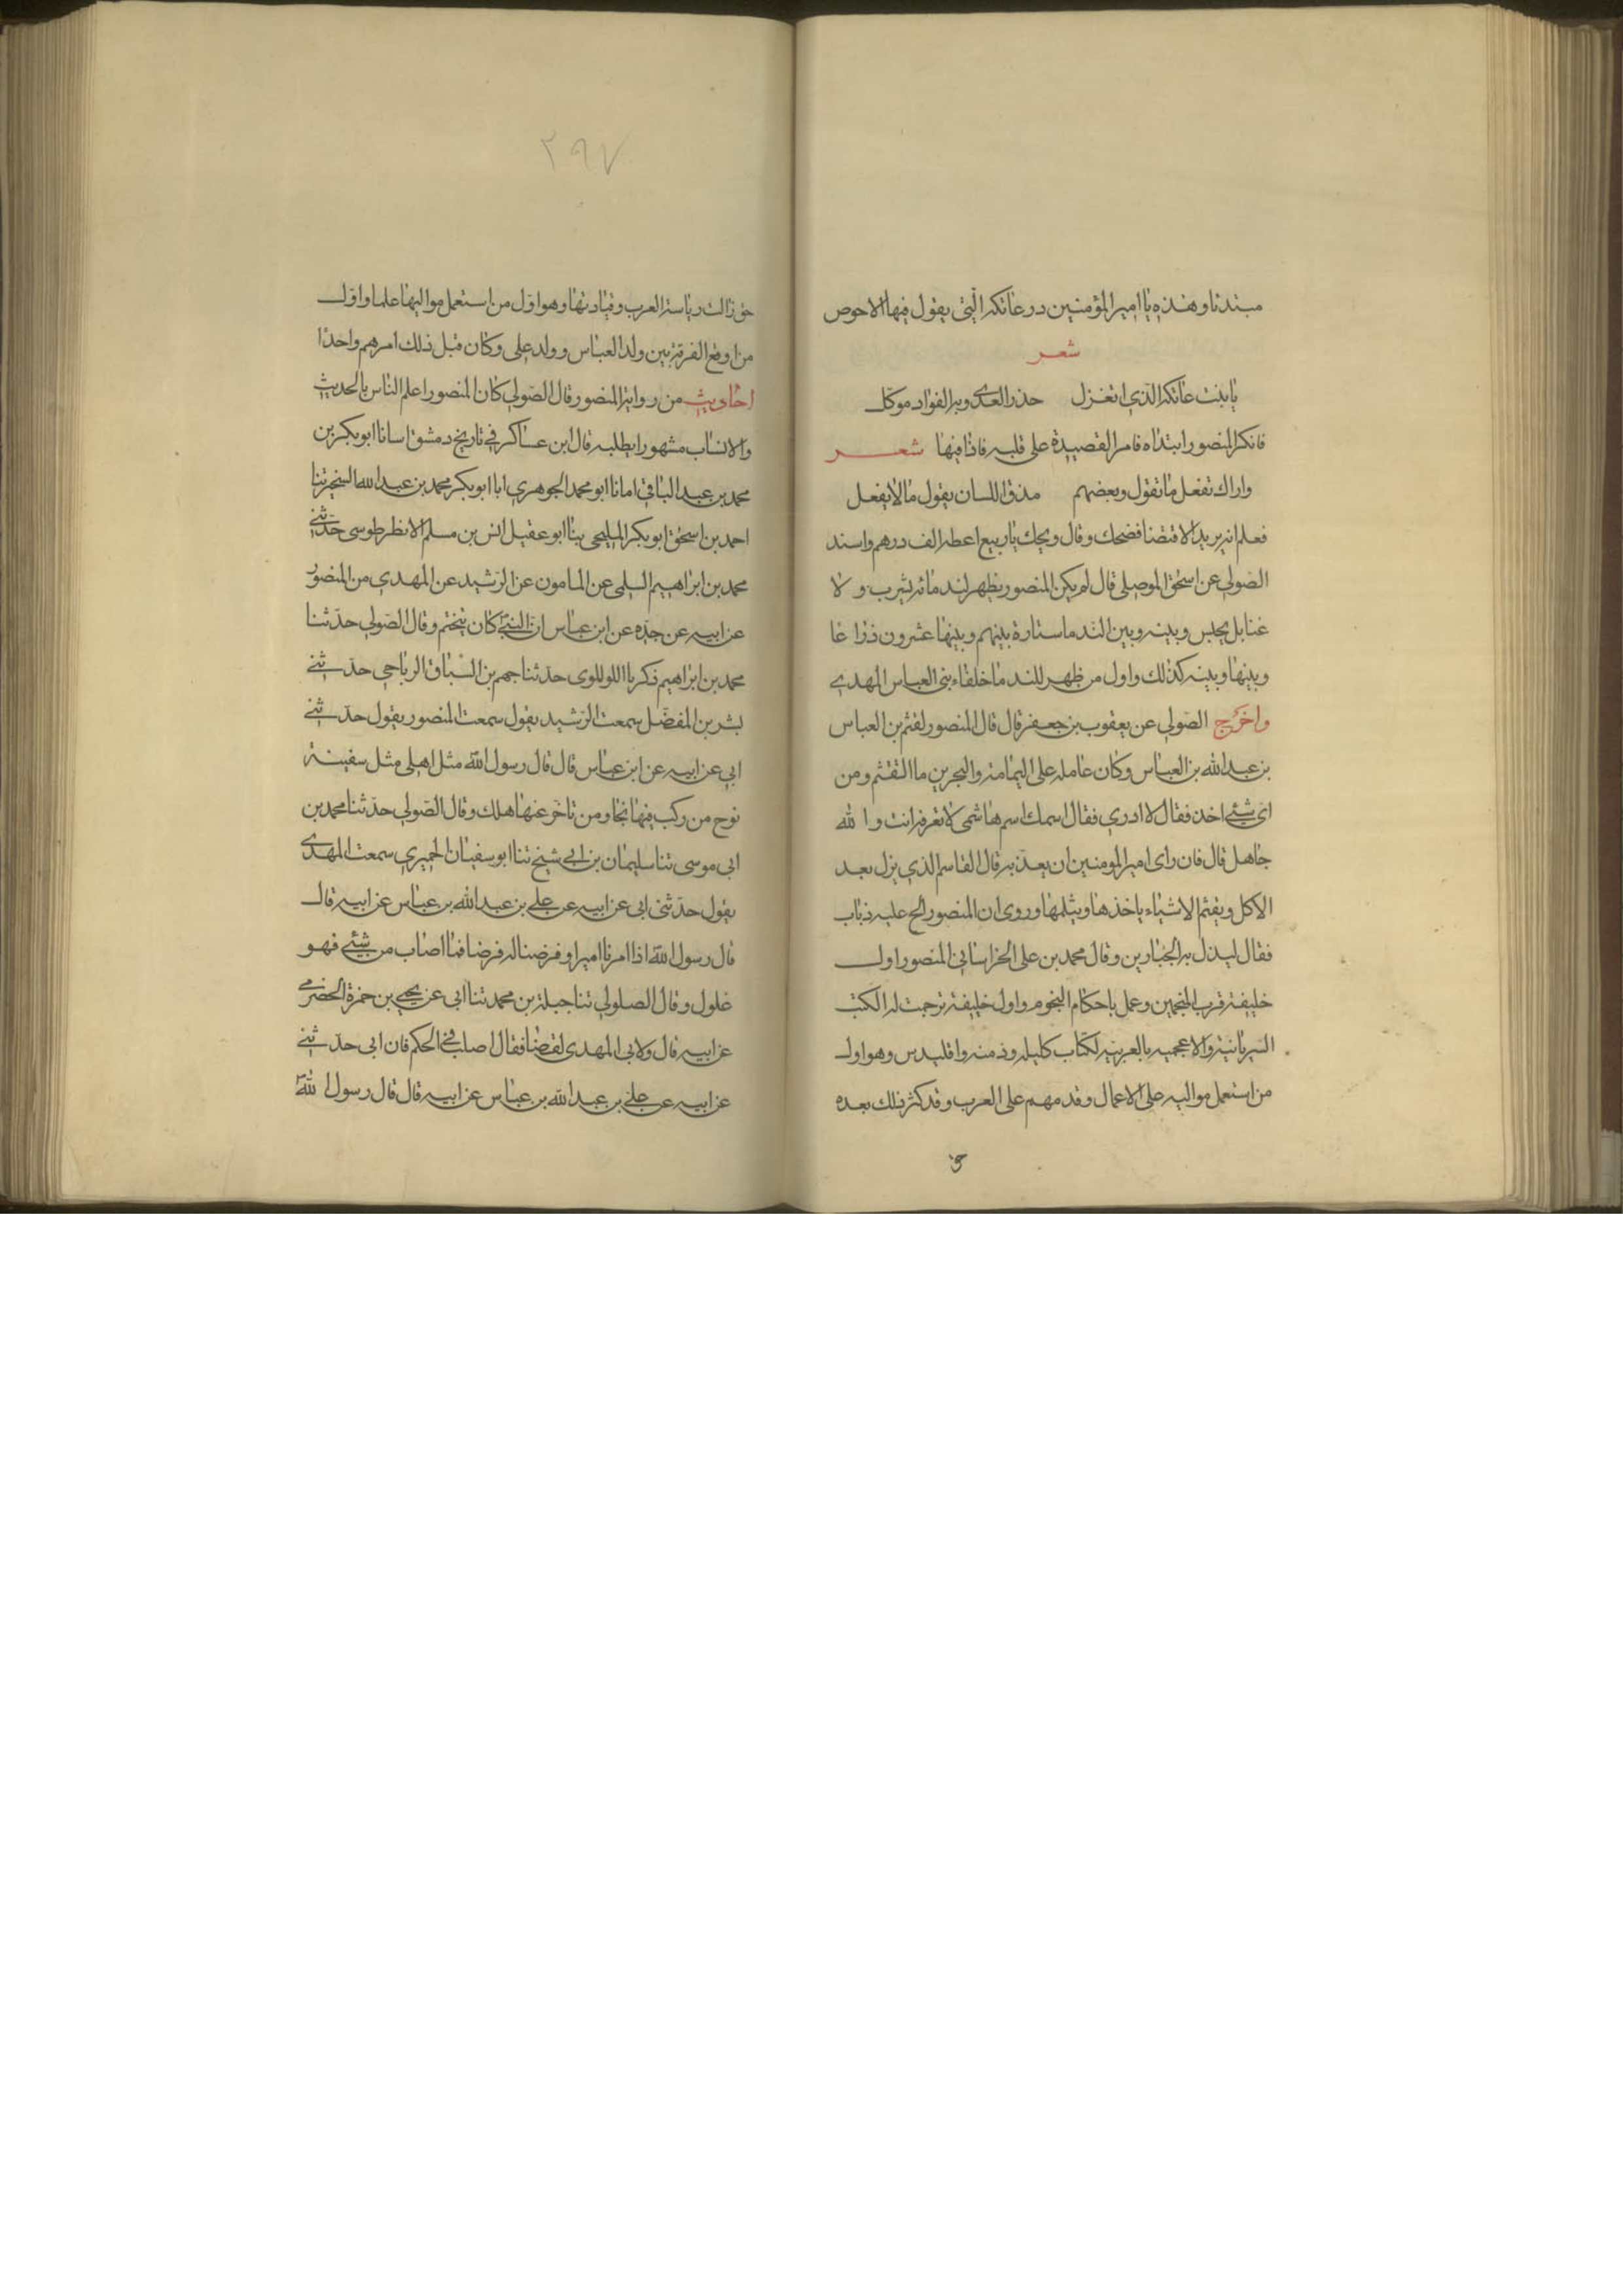 مبتدئا وهذه يا امير المؤمنين در عاتكة الّتي يقول فيها الاحوص
شعر
يا بنت عاتكة الذي اتغزل حذر العدى وبه الفؤاد موكل
فانكر المنصور ابتداه فامر القصيدة على قلبه فاذا فيها شعر
واراك تفعل ما تقول وبعضهم مذق اللسان يقول ما لا يفعل
فعلم انه يريد الاقتضا فضحك وقال ويحك يا ربيع اعطه الف درهم واسند
الصولي عن اسحق الموصلي قال لم يكن المنصور يظهر لندمائه بشرب ولا
غنا بل يجلس وبينه وبين الندما ستارة بينهم وبينها عشرون ذراعا
وبينها وبينه كذلك واول من ظهر للندما خلفاء بني العباس المهدي
واخرج الصولي عن يعقوب بن جعفر قال قال المنصور لقثم بن العباس
بن عبد الله بن العباس وكان عامله على اليمامة والبحرين ما القثم ومن
اى شئ اخذ فقال لا ادري فقال اسمك اسم هاشمى لا تعرفه انت والله
جاهل قال فان راى امير المومنين ان يعدّ به قال القاسم الذي ينزل بعد
الاكل ويقثم الاشياء ياخذها ويثلمها وروى ان المنصور الح عليه ذباب
فقال ليذل به الجبارين وقال محمد بن على الخراسانى المنصور اول
خليفة قرب المنجمين وعمل باحكام النجوم واول خليفة ترجمت له الكتب
السريانية والاعجميه بالعربية لكتاب كليله ودمنه واقليدس وهو اول
من استعمل مواليه على الاعمال وقدمهم على العرب وقد كثر ذلك بعده
٢٩٧
حتى زالت رياسة العرب وقيادتها وهو اوّل من استعمل مواليها علما واوّل
من اوقع الفرقة بين ولد العباس وولد على وكان قبل ذلك امرهم واحدا
احاديث من رواية المنصور قال الصّولي كان المنصور اعلم الناس بالحديث
والانساب مشهورا بطلبه قال ابن عساكر في تاريخ دمشق اسانا ابو بكر بن
محمد بن عبد الباقي امانا ابو محمد الجوهري ابا ابو بكر محمد بن عبد الله الشخير ثنا
احمد بن اسحق ابو بكر المليحى ثنا ابو عقيل انس بن مسلم الانظرطوسى حدّثنى
محمد بن ابراهيم السلمى عن المامون عن الرّشيد عن المهدي من المنصور
عن ابيه عن جدّه عن ابن عباس ان النبيّ كان يتختم وقال الصّولي حدّثنا
محمد بن ابراهيم ذكريا اللولوى حدّثنا جهم بن السّباق الرياحي حدّثنى
بشر بن المفضّل سمعت الرّشيد يقول سمعت المنصور يقول حدّثنى
ابي عن ابيه عن ابن عباس قال قال رسول الله مثل اهلى مثل سفينة
نوح من ركب فيها نجا ومن تاخّر عنها هلك وقال الصّولي حدّثنا محمد بن
ابى موسى ثنا سليمان بن ابي شيخ ثنا ابو سفيان الحميري سمعت المهدى
يقول حدّثنى ابى عن ابيه عن على بن عبد الله بن عباس عن ابيه قال
قال رسول الله اذا امرنا اميرا وفرضنا له فرضا فما اصاب من شئ فهو
غلول وقال الصلولي ثنا جبلة بن محمد ثنا ابى عن يحيى بن حمزة الحضرمى
عن ابيه قال ولانى المهدى لقضا فقال اصلب فى الحكم فان ابى حدّثنى
عن ابيه عن على بن عبد الله بن عباس عن ابيه قال قال رسول الله